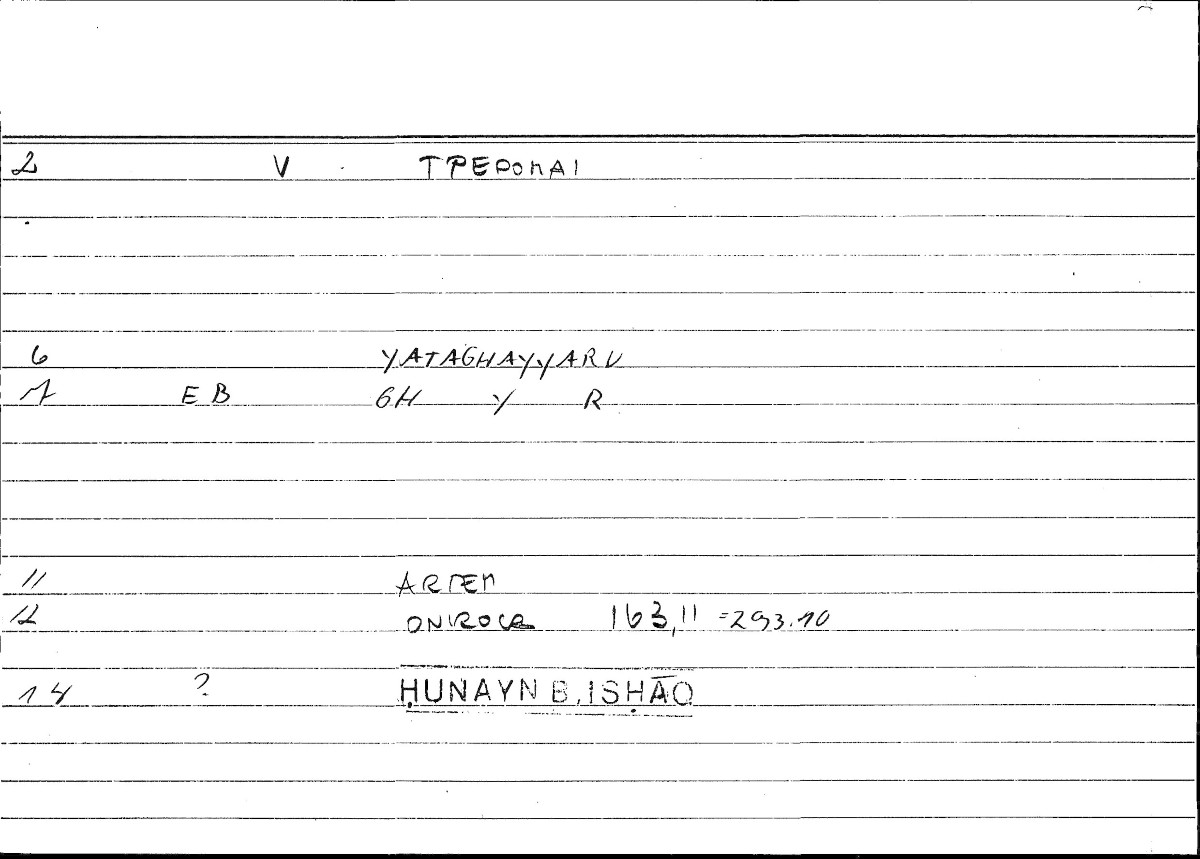 2 V TREPOMAI
6 YATAGHAYYARU
7 EB GH Y R
11 ARTEM
12 ONIROCR 163,11 =293.10
14 ? ḤUNAYN B. ISḤĀQ